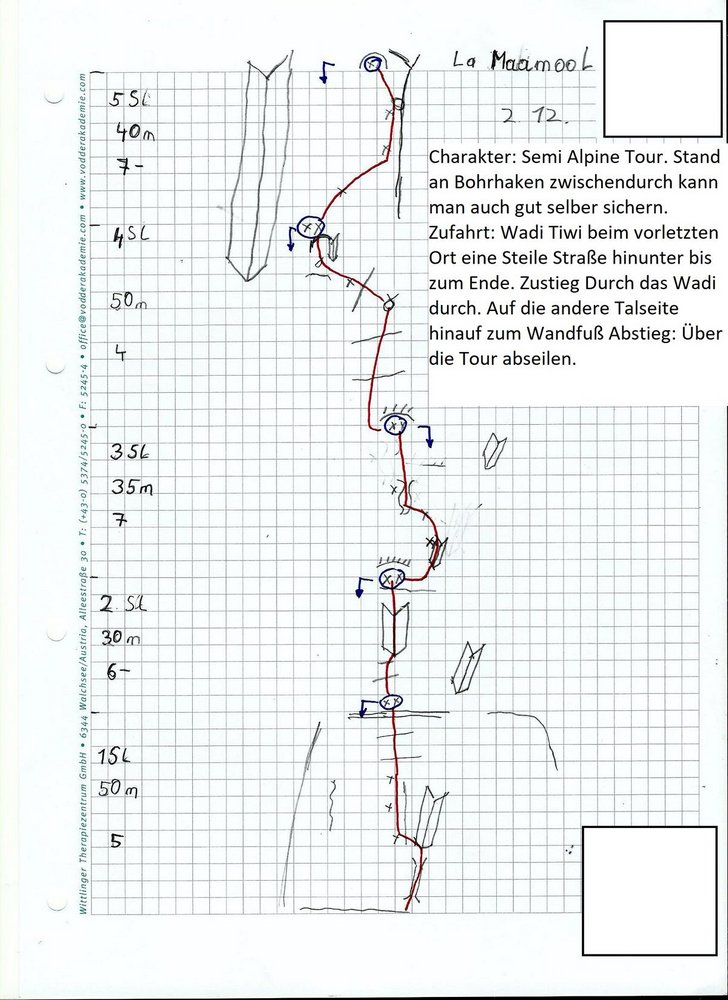 La Maamool
2 12.
5 SL
40m
7-
Charakter: Semi Alpine Tour. Stand
an Bohrhaken zwischendurch kann
man auch gut selber sichern.
Zufahrt: Wadi Tiwi beim vorletzten
Ort eine Steile Straße hinunter bis
zum Ende. Zustieg Durch das Wadi
durch. Auf die andere Talseite
hinauf zum Wandfuß Abstieg: Über
die Tour abseilen.
4 SL
50m
4
3 SL
35m
7
2. SL
30m
6-
1SL
50m
5
Wittlinger Therapiezentrum GmbH • 6344 Walchsee/Austria, Alleestraße 30 • T: (+43-0) 5374/5245-0 • F: 5245-4 • office@vodderakademie.com • www.vodderakademie.com